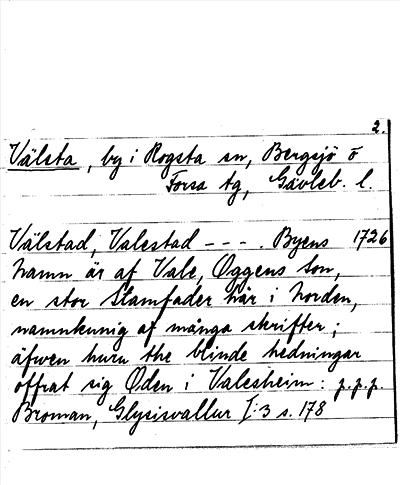 2.
Välsta, by i Rogsta sn, Bergsjö o
Forsa tg, Gävleb. l.
Välstad, Valestad - - - . Byens 1726
hamn är af Vale, Oggens son,
en stor stamfader här i Norden,
namnkunig af många skrifter;
äfwen huru the blinde hedningar
offrat sig Oden i Valesheim: p.p.p.
Broman, Glysisvallur I:3 s. 178